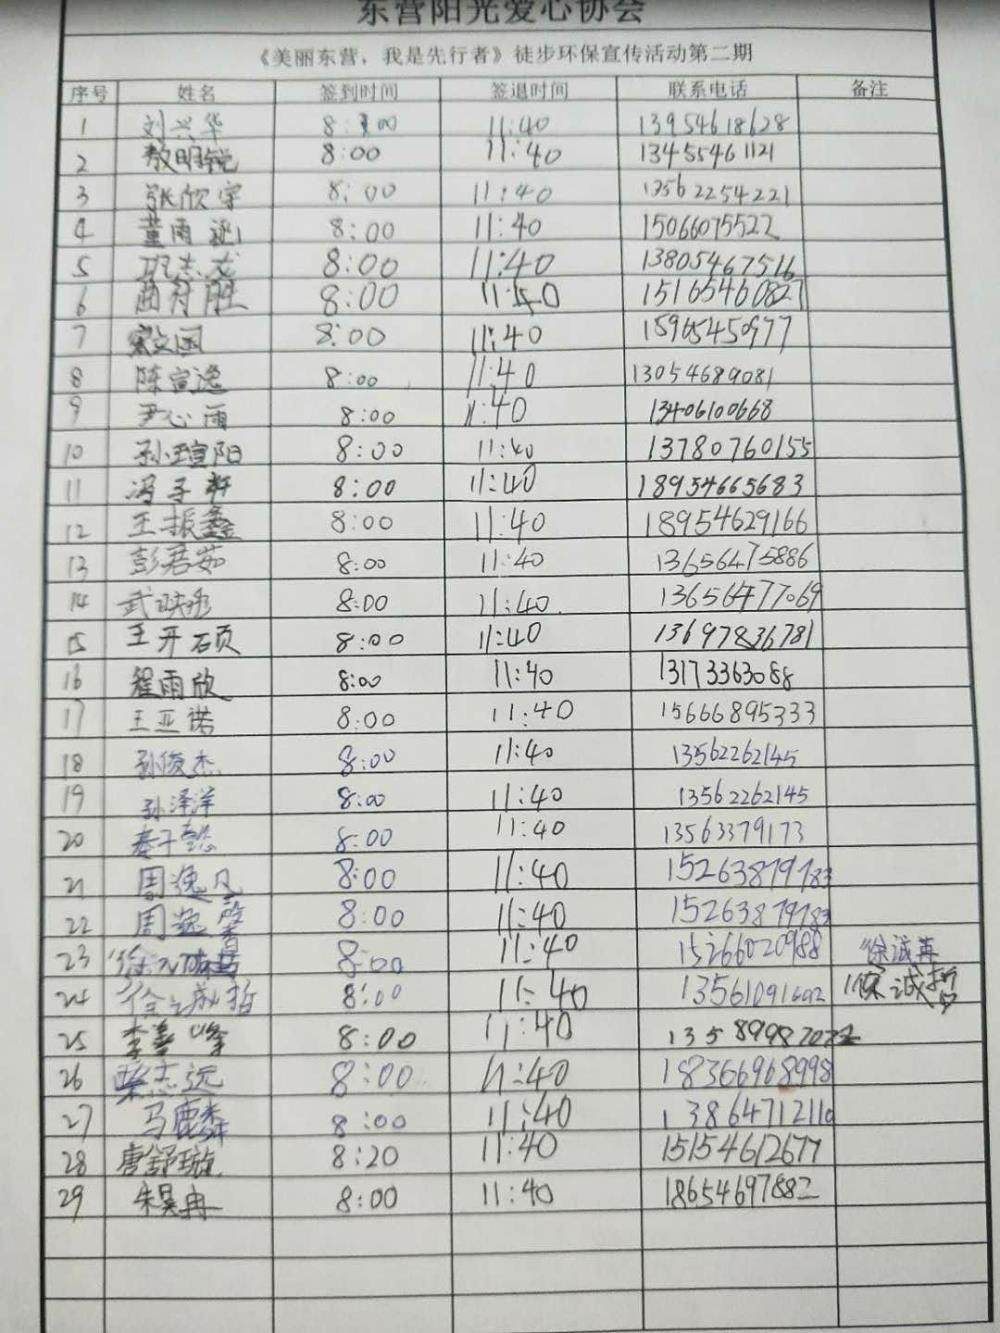 东营阳光爱心协会
《美丽东营，我是先行者》徒步环保宣传活动第二期
序号 姓名 签到时间 签退时间 联系电话 备注
1 刘兴华 8:00 11:40 13954618628
2 敖明锐 8:00 11:40 13455461121
3 张欣宇 8:00 11:40 13562254221
4 董雨 8:00 11:40 15066075522
5 志龙 8:00 11:40 13805467516
6 胜 8:00 11:40 15165460827
7 文国 8:00 11:40 15965450977
8 陈宣逸 8:00 11:40 13054689081
9 尹心雨 8:00 11:40 13406100668
10 孙瑄阳 8:00 11:40 13780760155
11 冯子轩 8:00 11:40 18954665683
12 王振鑫 8:00 11:40 18954629166
13 彭君茹 8:00 11:40 13656475886
14 武映彤 8:00 11:40 13656477069
15 王开硕 8:00 11:40 13697836781
16 程雨欣 8:00 11:40 13173363088
17 王亚诺 8:00 11:40 15666895333
18 孙俊杰 8:00 11:40 13562262145
19 孙泽洋 8:00 11:40 13562262145
20 秦子懿 8:00 11:40 13563379173
21 周逸凡 8:00 11:40 15263879783
22 周逸馨 8:00 11:40 15263879783
23 8:00 11:40 15266020988 徐诚苒
24 徐诚哲 8:00 11:40 13561091602 徐诚哲
25 李善峰 8:00 11:40
26 志远 8:00 11:40 18366968998
27 马麒舜 8:00 11:40 13864712110
28 唐舒璇 8:20 11:40 15154612677
29 朱昊冉 8:00 11:40 18654697882